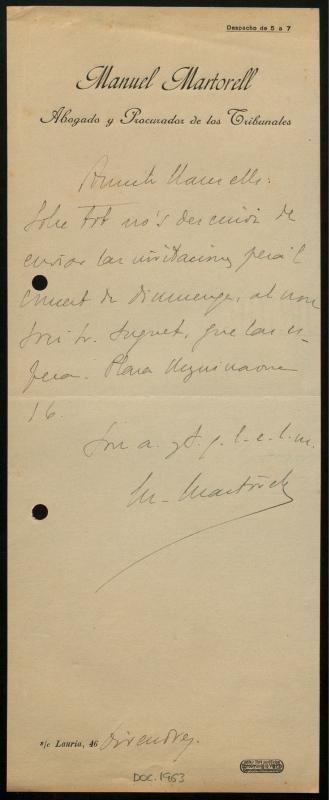 Despacho de 5 a 7
Manuel Martorell
Abogado y Procurador de los Tribunales
Sobre tot no's descuidi de
enviar las invitacions pera'l
concert de diumenge, al nou
soci Sr. Suguet, que las es-
pera. Plaza Urquinaona
16.
Son a. y S. q. l. e. l. m.
M. Martorell
s/c Lauria, 46 divendres.
DOC. 1953